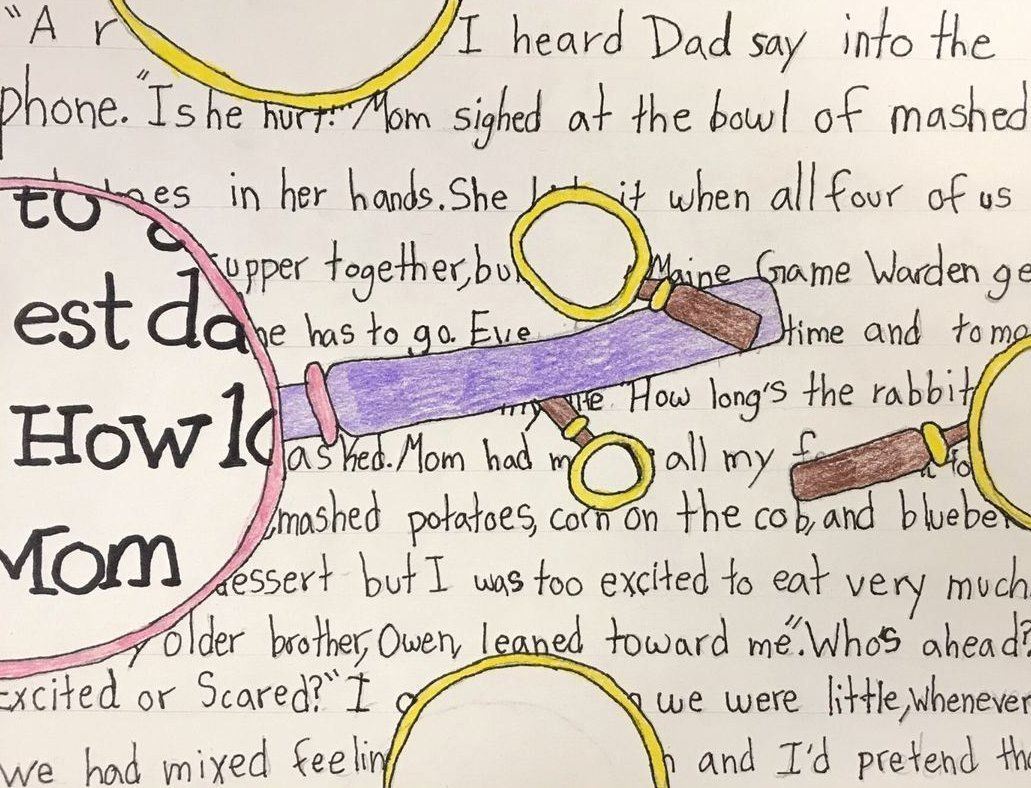 "A r I heard Dad say into the
phone. "Is he hurt?" Mom sighed at the bowl of mashed
to oes in her hands. She it when all four of us
upper together, bu Maine Game Warden ge
est da he has to go. Eve time and tomo
How lo my life. How long's the rabbit
asked. Mom had m all my f
Mom mashed potatoes, corn on the cob, and blueber
dessert but I was too excited to eat very much.
y older brother, Owen, leaned toward me". Who's ahead?
Excited or Scared?" I we were little, whenever
we had mixed feelin and I'd pretend tha